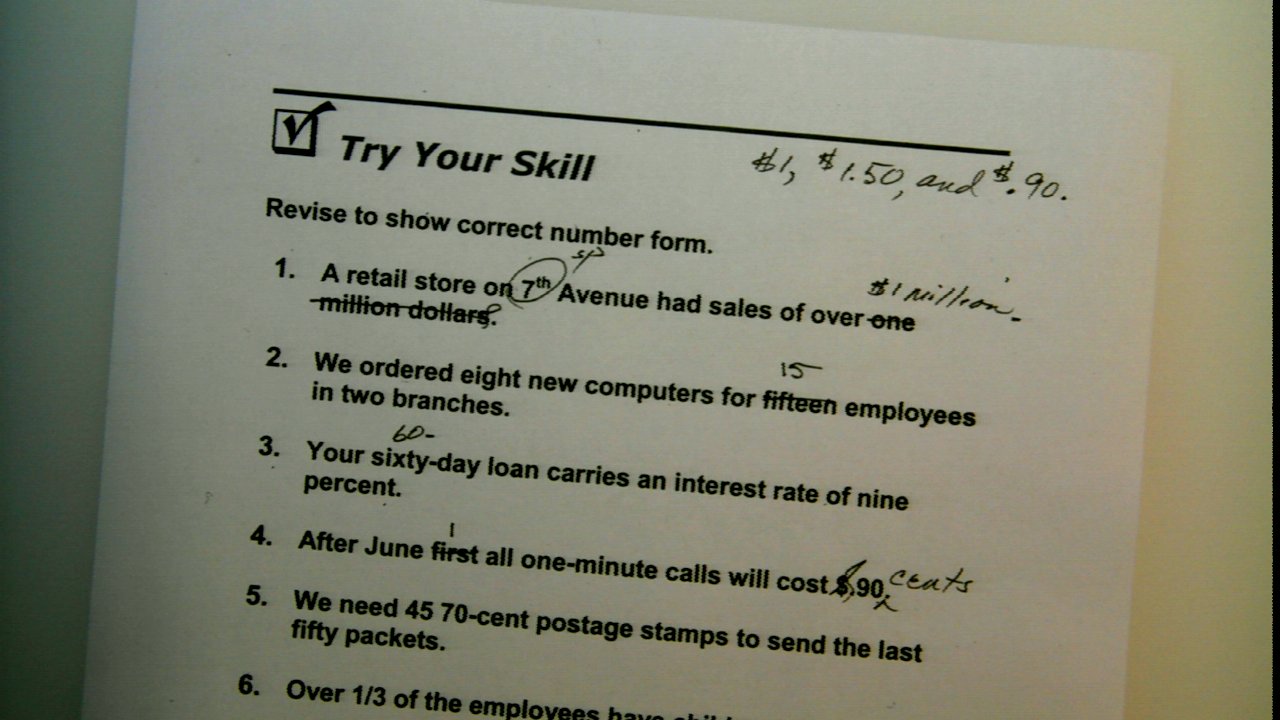 Try Your Skill
$1, $1.50, and $.90.
Revise to show correct number form.
sp
$1 million.
1. A retail store on 7th Avenue had sales of over one
million dollars.
15
2. We ordered eight new computers for fifteen employees
in two branches.
60-
3. Your sixty-day loan carries an interest rate of nine
percent.
1
4. After June first all one-minute calls will cost $.90. cents
5. We need 45 70-cent postage stamps to send the last
fifty packets.
6. Over 1/3 of the employees have